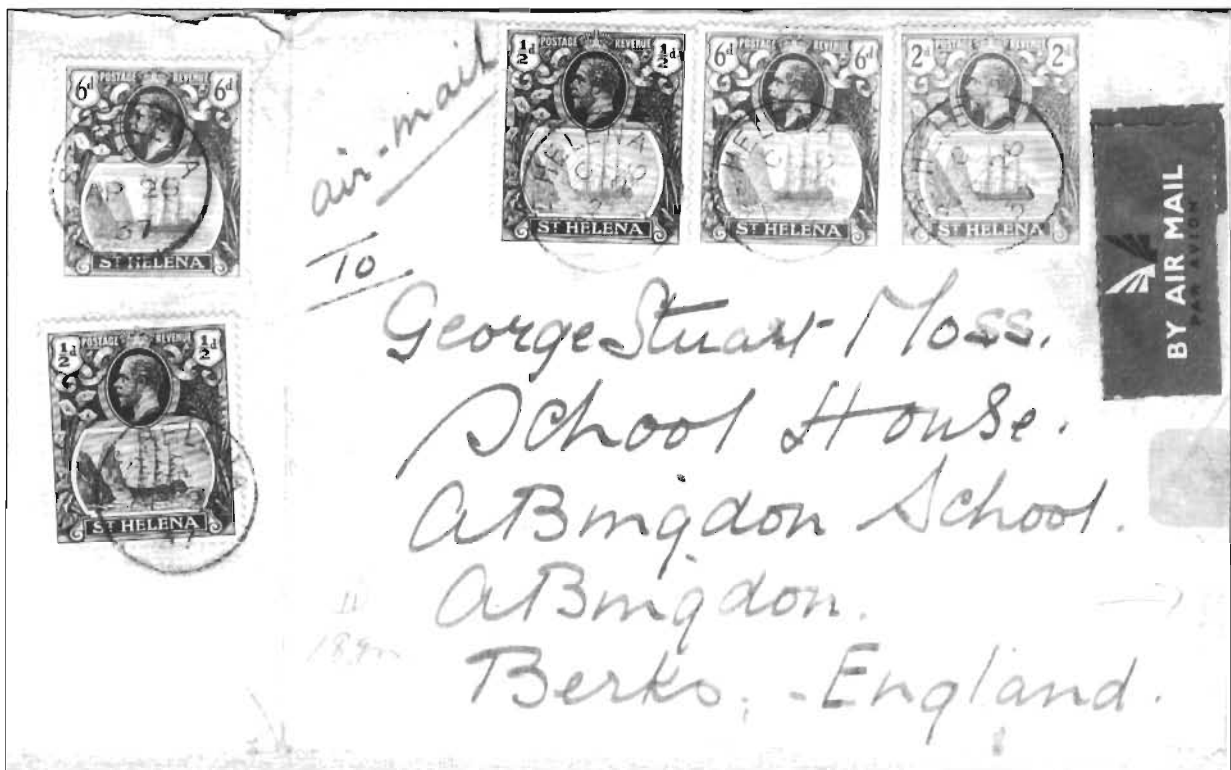 ½d POSTAGE & REVENUE ½d
ST HELENA
6d POSTAGE & REVENUE 6d
ST HELENA
2d POSTAGE & REVENUE 2d
ST HELENA
6d POSTAGE & REVENUE 6d
AP 26
37
ST HELENA
½d POSTAGE & REVENUE ½d
ST HELENA
air-mail
BY AIR MAIL
PAR AVION
To
George Stuart Moss.
School House.
Abingdon School.
Abingdon.
Berks, - England.